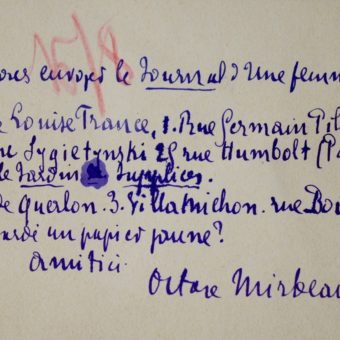 15/8
vous envoyer le Journal d'une femm
Louise France, 1. Rue Germain Pil
Sygietynski 25 rue Humbolt (Pa
le Jardin de Supplices.
de Querlon. 3. Villa Michon. rue Bo
un papier jaune?
amitiés
Octave Mirbeau